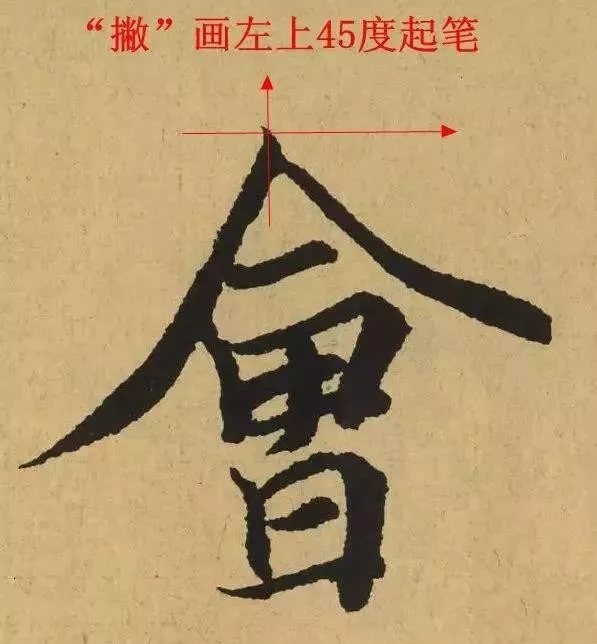 “撇”画左上45度起笔
會